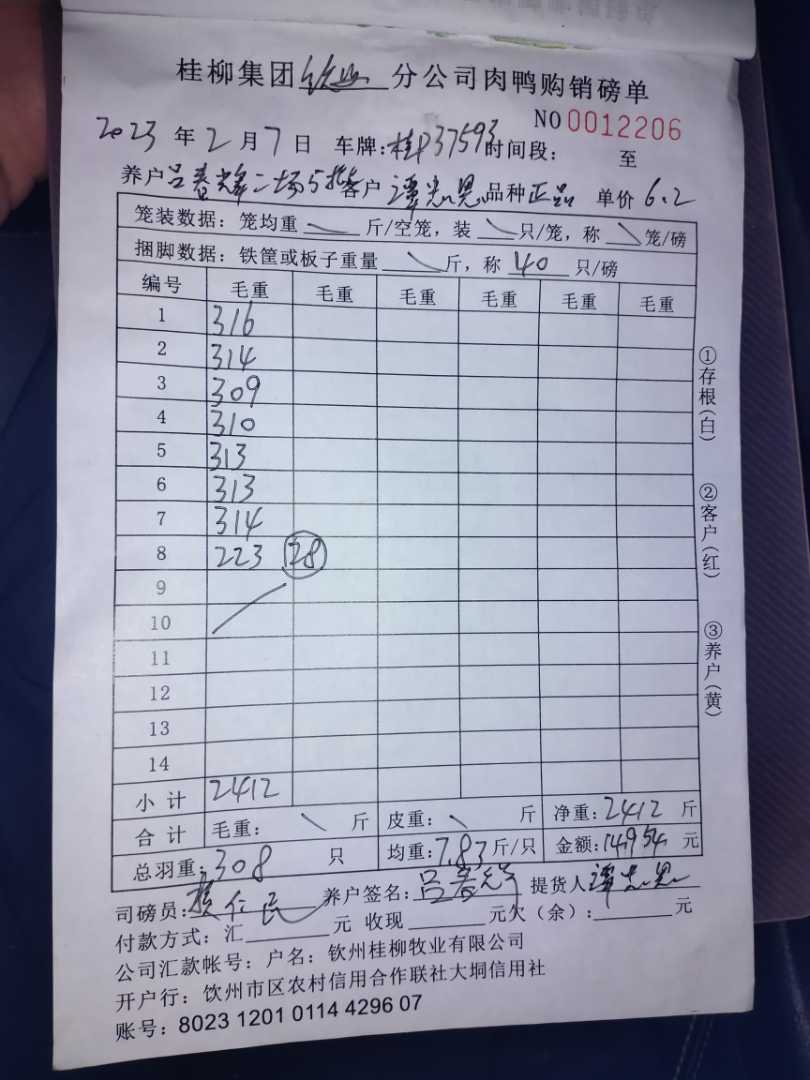 桂柳集团钦州分公司肉鸭购销磅单
NO 0012206
2023年2月7日 车牌:桂P37593时间段: 至
养户吕春辉二场5栋客户谭光恩品种正品 单价6.2
笼装数据:笼均重 斤/空笼,装 只/笼,称 笼/磅
捆脚数据:铁筐或板子重量 斤,称40只/磅
编号 毛重 毛重 毛重 毛重 毛重 毛重
1 316
2 314
3 309
4 310
5 313
6 313
7 314
8 223 28
9
10
11
12
13
14
小计 2412
合计 毛重: 斤 皮重: 斤 净重:2412斤
总羽重:308只 均重:7.83斤/只 金额:14954元
司磅员: 仁民 养户签名:吕春辉 提货人谭光恩
付款方式:汇 元 收现 元欠(余): 元
公司汇款帐号:户名:钦州桂柳牧业有限公司
开户行:饮州市区农村信用合作联社大垌信用社
账号:8023 1201 0114 4296 07
①存根(白)
②客户(红)
③养户(黄)